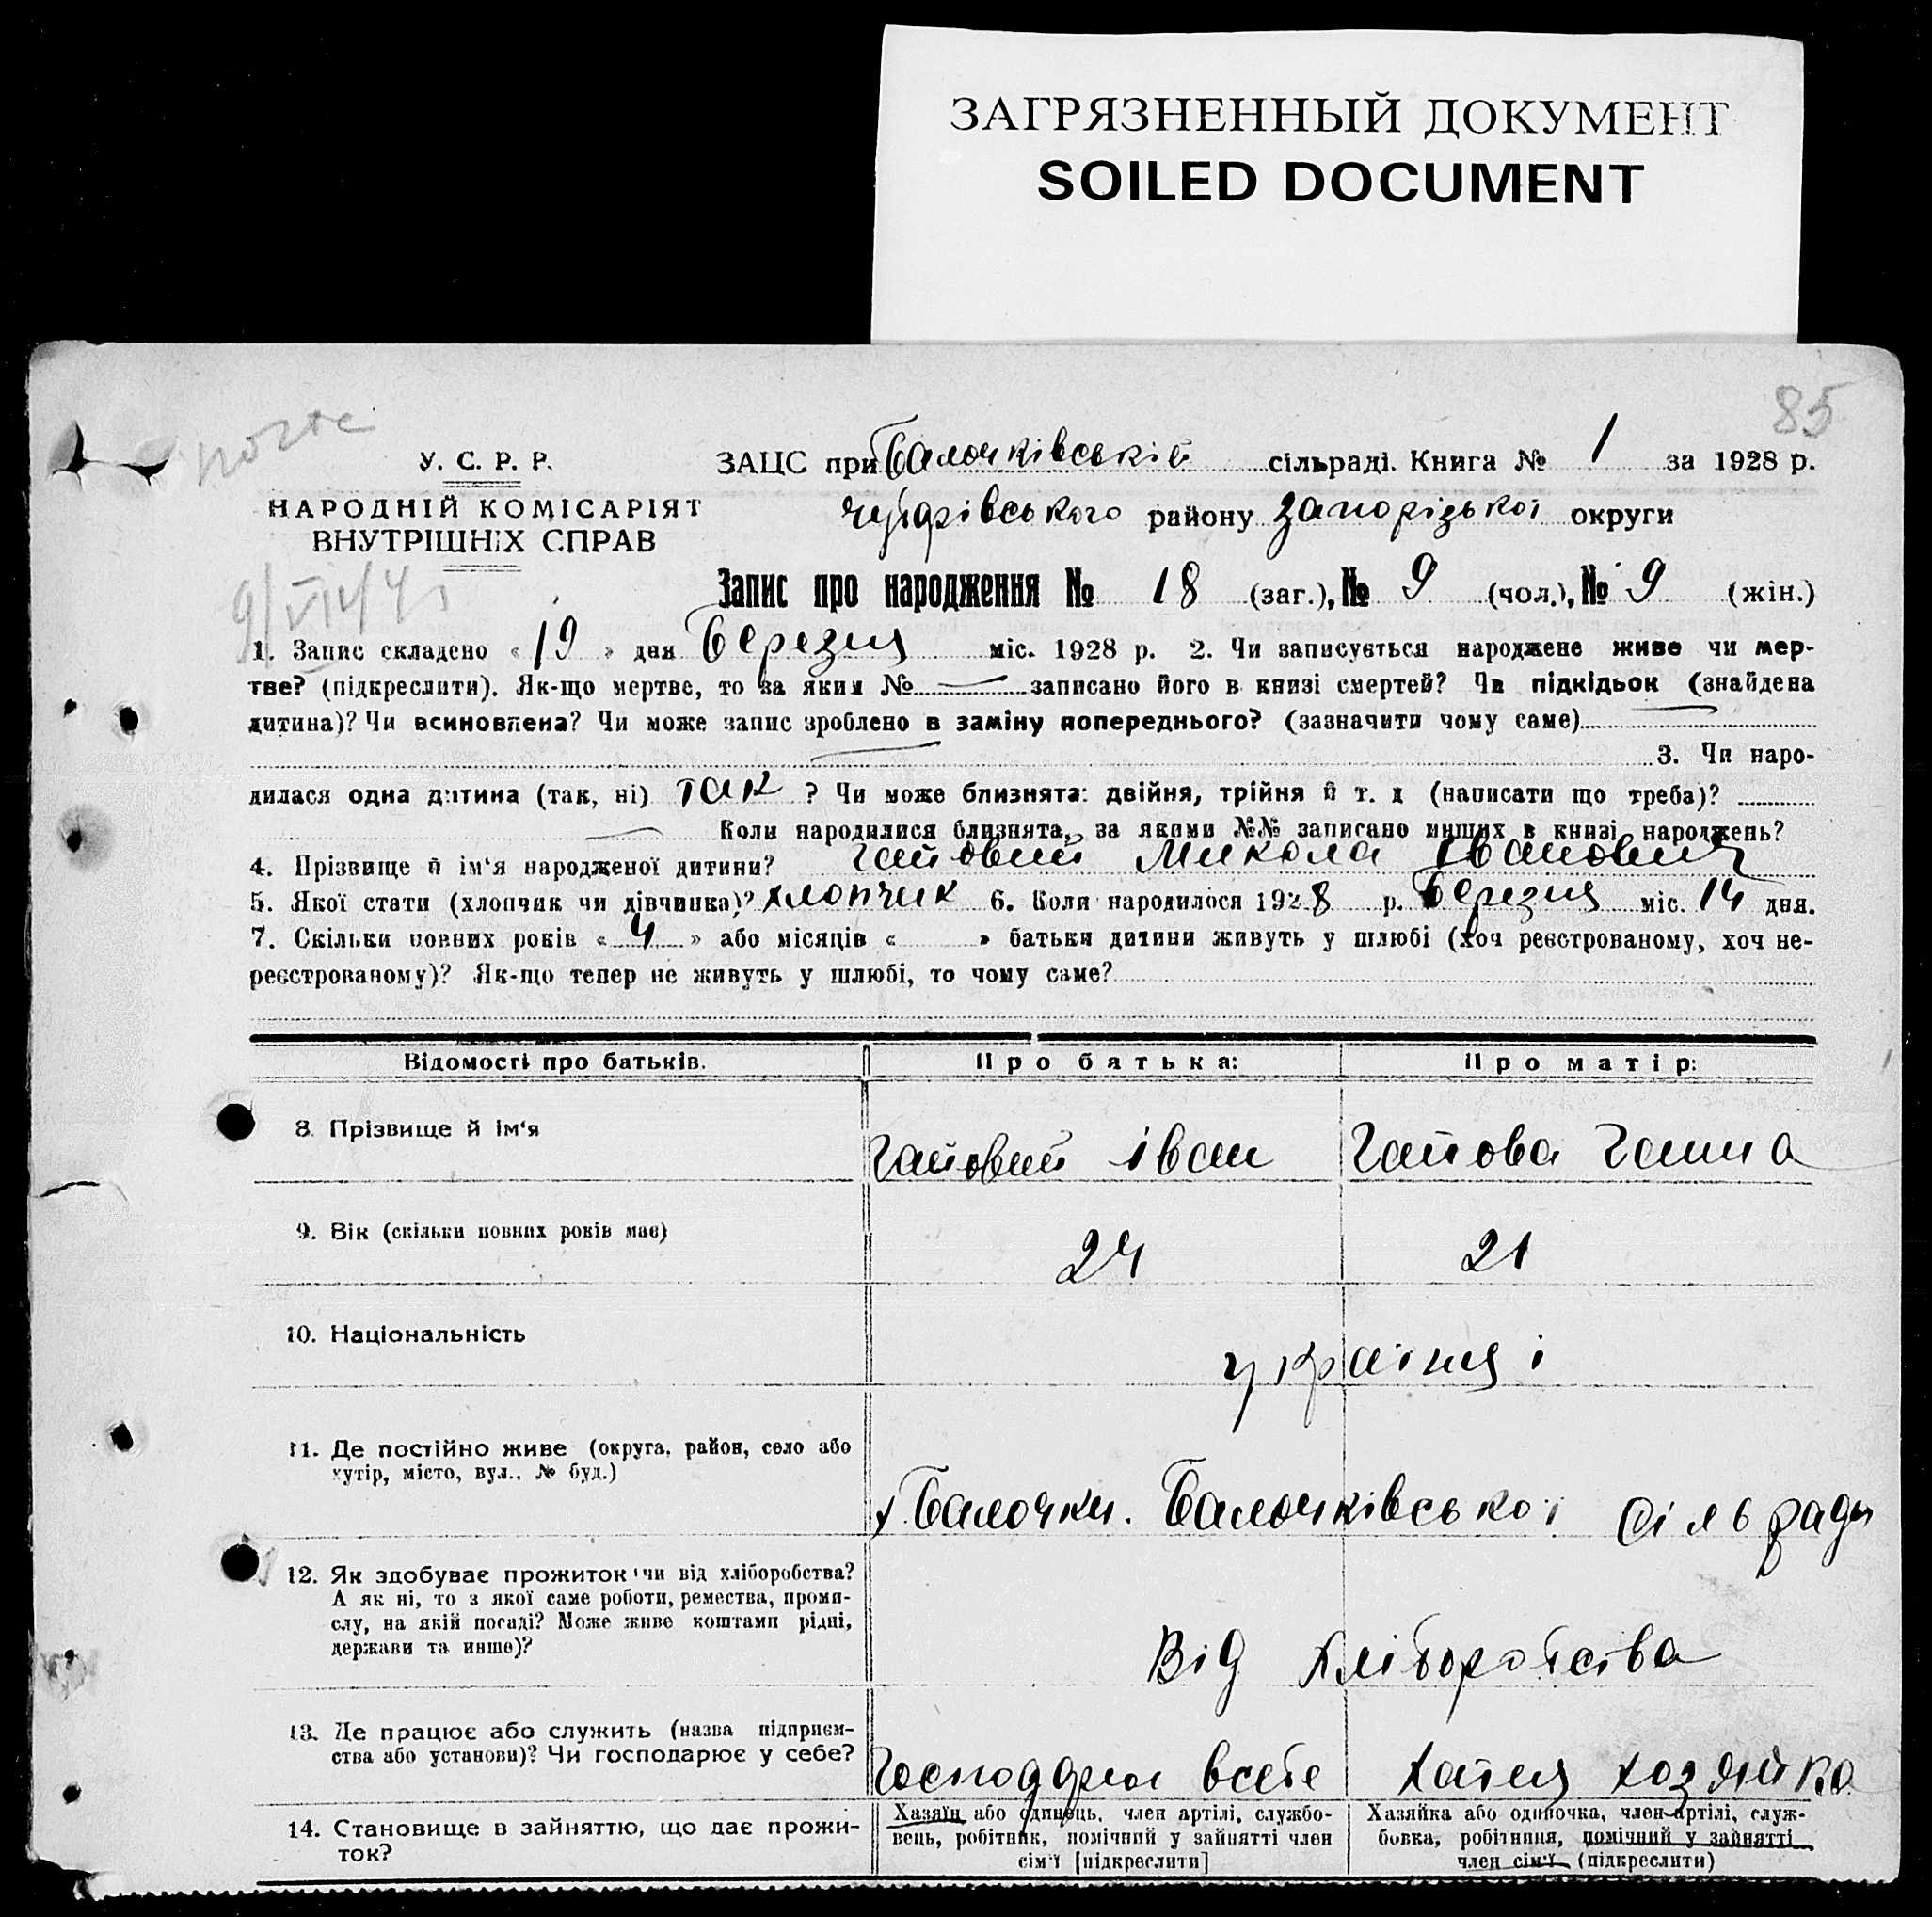 ЗАГРЯЗНЕННЫЙ ДОКУМЕНТ
SOILED DOCUMENT
85
У. С. Р. Р.
НАРОДНІЙ КОМІСАРІЯТ
ВНУТРІШНІХ СПРАВ
ЗАЦС при Балочківській сільраді. Книга № 1 за 1928 р.
району Запорізької округи
Запис про народження № 18 (заг.), № 9 (чол.), № 9 (жін.)
1. Запис складено « 19 » дня Березня міс. 1928 р. 2. Чи записується народжене живе чи мер-
тве? (підкреслити). Як-що мертве, то за яким № — записано його в книзі смертей? Чи підкідьок (знайдена
дитина)? Чи всиновлена? Чи може запис зроблено в заміну попереднього? (зазначити чому саме)
3. Чи наро-
дилася одна дитина (так, ні) так ? Чи може близнята: двійня, трійня й т. д (написати що треба)?
— Коли народилися близнята, за якими №№ записано инших в книзі народжень?
4. Прізвище й ім'я народженої дитини? Гайовий Микола Іванович
5. Якої стати (хлопчик чи дівчинка)? хлопчик 6. Коли народилося 1928 р. Березня міс. 14 дня.
7. Скільки повних років « 4 » або місяців « » батьки дитини живуть у шлюбі (хоч реєстрованому, хоч не-
реєстрованому)? Як-що тепер не живуть у шлюбі, то чому саме?
Відомості про батьків. Про батька: Про матір:
8 Прізвище й ім'я Гайовий Іван Гайова Ганна
9. Вік (скільки повних років має) 24 21
10. Національність українці
11. Де постійно живе (округа, район, село або
хутір, місто, вул., № буд.)
х. Балочки. Балочківської сільради
12. Як здобуває прожиток (чи від хліборобства?
А як ні, то з якої саме роботи, ремества, проми-
слу, на якій посаді? Може живе коштами рідні,
держави та инше)?
Від хліборобства
13. Де працює або служить (назва підприєм-
ства або установи)? Чи господарює у себе?
Господарює в себе хатня хозяйка
14. Становище в зайняттю, що дає прожи-
ток?
Хазяїн або одинець, член артілі, службо-
вець, робітник, помічний у зайнятті член
сім'ї [підкреслити]
Хазяйка або одиночка, член артілі, служ-
бовка, робітниця, помічний у зайнятті
член сім'ї (підкреслити)